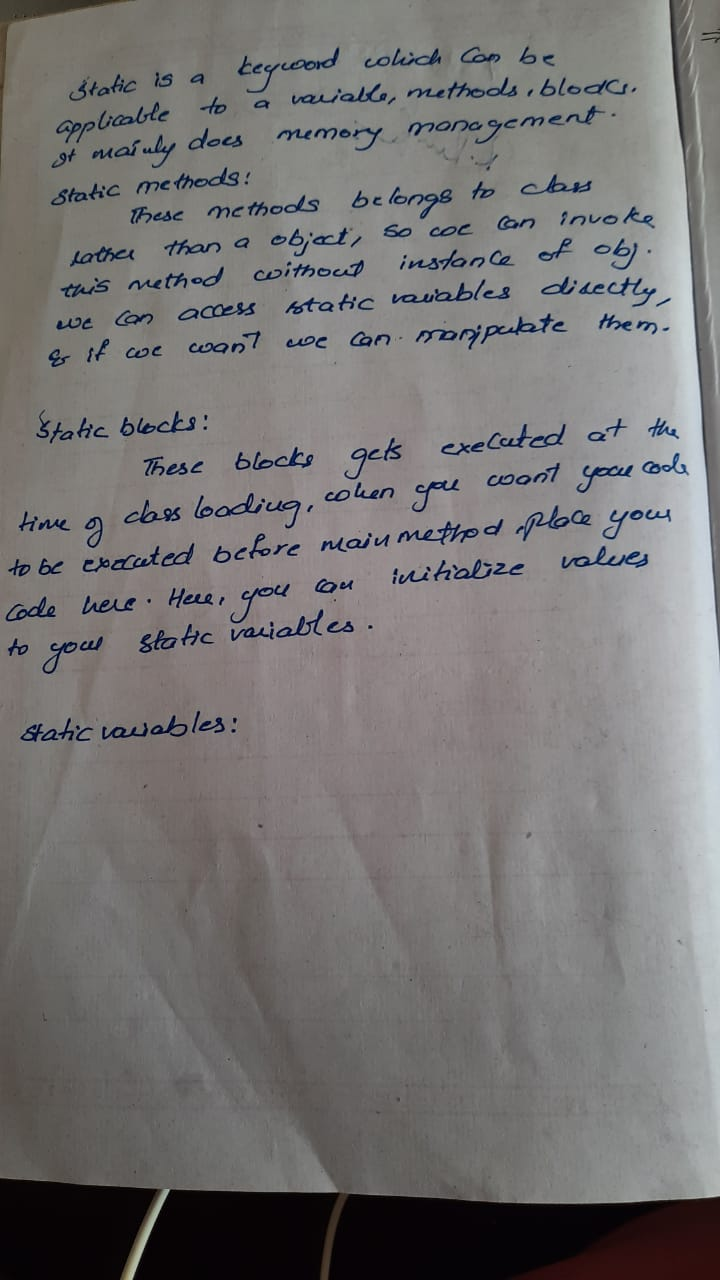 Static is a keyword which Can be
applicable to a variable, methods, blocks.
It mainly does memory management.
Static methods:
These methods belongs to class
rather than a object, so we can invoke
this method without instance of obj.
we can access static variables directly,
& if we want we can manipulate them.
Static blocks:
These blocks gets executed at the
time of class loading, when you want your code
to be executed before main method. place your
Code here. Here, you can initialize values
to your static variables.
Static variables: